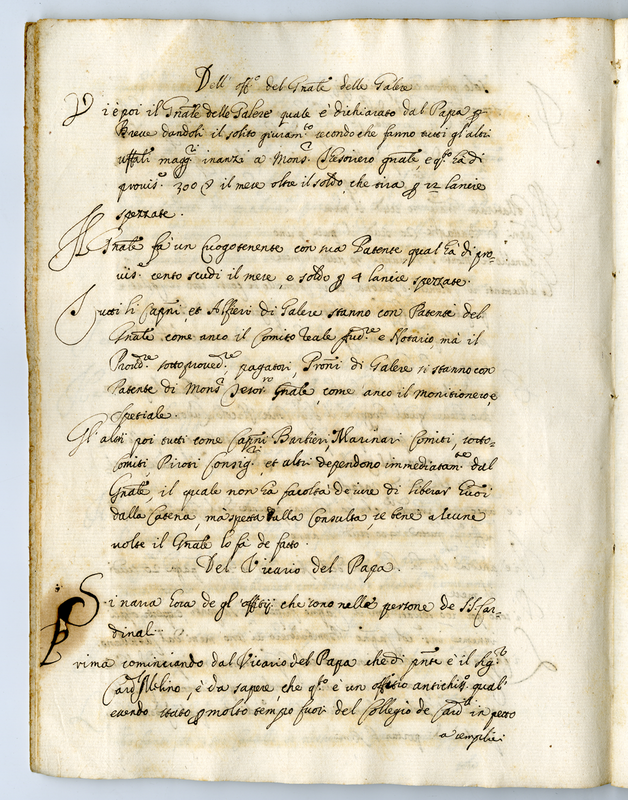 Dell' off.o del Gnale delle Galere
Vi è poi il Gnale delle Galere quale è dichiarato dal Papa p
Breve dandoli il solito giuram.to secondo che fanno tutti gl'altri
uffitiali magg.ri inanzi a Mons.r Thesoriero gnale, e q.to hà di
provis.e 300 ▽ il mese oltre il soldo, che tira p 12 lancie
spezzate.
Il Gnale fa un luogotenente con sua Patente, qual hà di pro-
vis.e cento scudi il mese, e soldo p 4 lancie spezzate.
Tutti li Capni, et Alfieri di Galere stanno con Patente del
Gnale come anco il Comito reale Aud.re e Notario, mà il
Proved.re sottoproved.re, pagatori, Proñi di Galere si stanno con
Patente di Mons.r Tesor.ro Gnale, come anco il monitionero, e
spetiale.
Gl'altri poi tutti come Capni Barbieri, Marinari Comiti, sotto-
comiti, Piloti Consig.ri, et altri dependono immediatam.te dal
Gnale, il quale non hà facoltà de iure di liberar huoi
dalla Catena, mà spetta alla Consulta, se bene alcune
volte il Gnale lo fà de facto.
Del Vicario del Papa.
Si narra hora de gl'offitij che sono nelle persone de SS.Car-
dinali
Prima cominciando dal Vicario del Papa che di pnte è il Sig.r
Card. Melino, è da sapere, che q.to è un offitio antichis.o qual'
essendo stato p molto tempo fuori del Collegio de Card.li in petto
a semplici